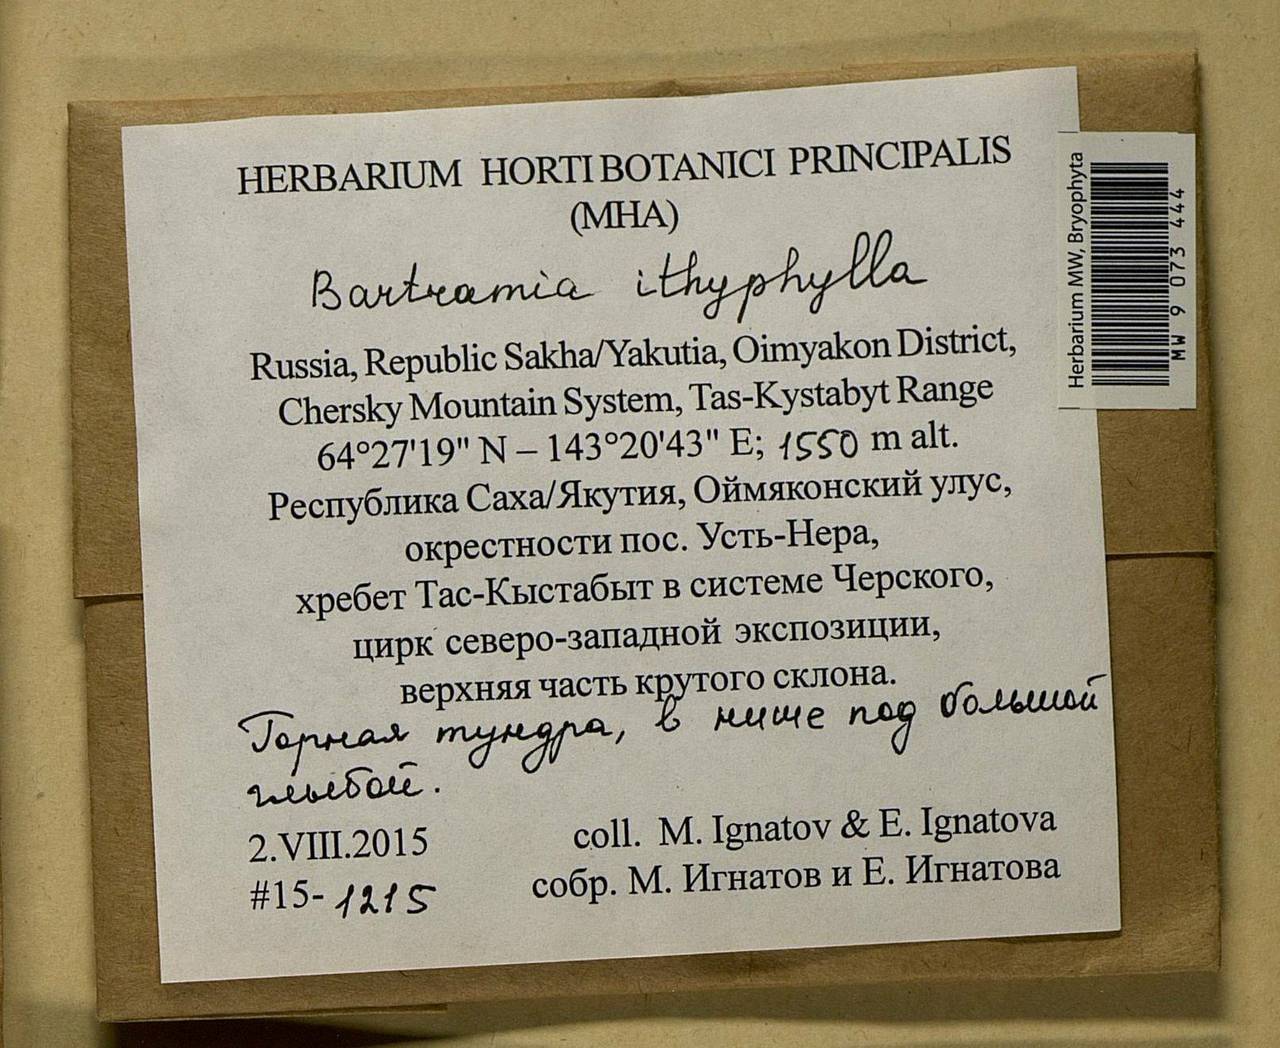 HERBARIUM HORTI BOTANICI PRINCIPALIS
(MHA)
Bartramia ithyphylla
Russia, Republic Sakha/Yakutia, Oimyakon District,
Chersky Mountain System, Tas-Kystabyt Range
64°27'19" N – 143°20'43" E; 1550 m alt.
Республика Саха/Якутия, Оймяконский улус,
окрестности пос. Усть-Нера,
хребет Тас-Кыстабыт в системе Черского,
цирк северо-западной экспозиции,
верхняя часть крутого склона.
Горная тундра, в нише под большой
глыбой.
2.VIII.2015 coll. M. Ignatov & E. Ignatova
#15-1215 собр. М. Игнатов и Е. Игнатова
Herbarium MW, Bryophyta
MW 9 073 444